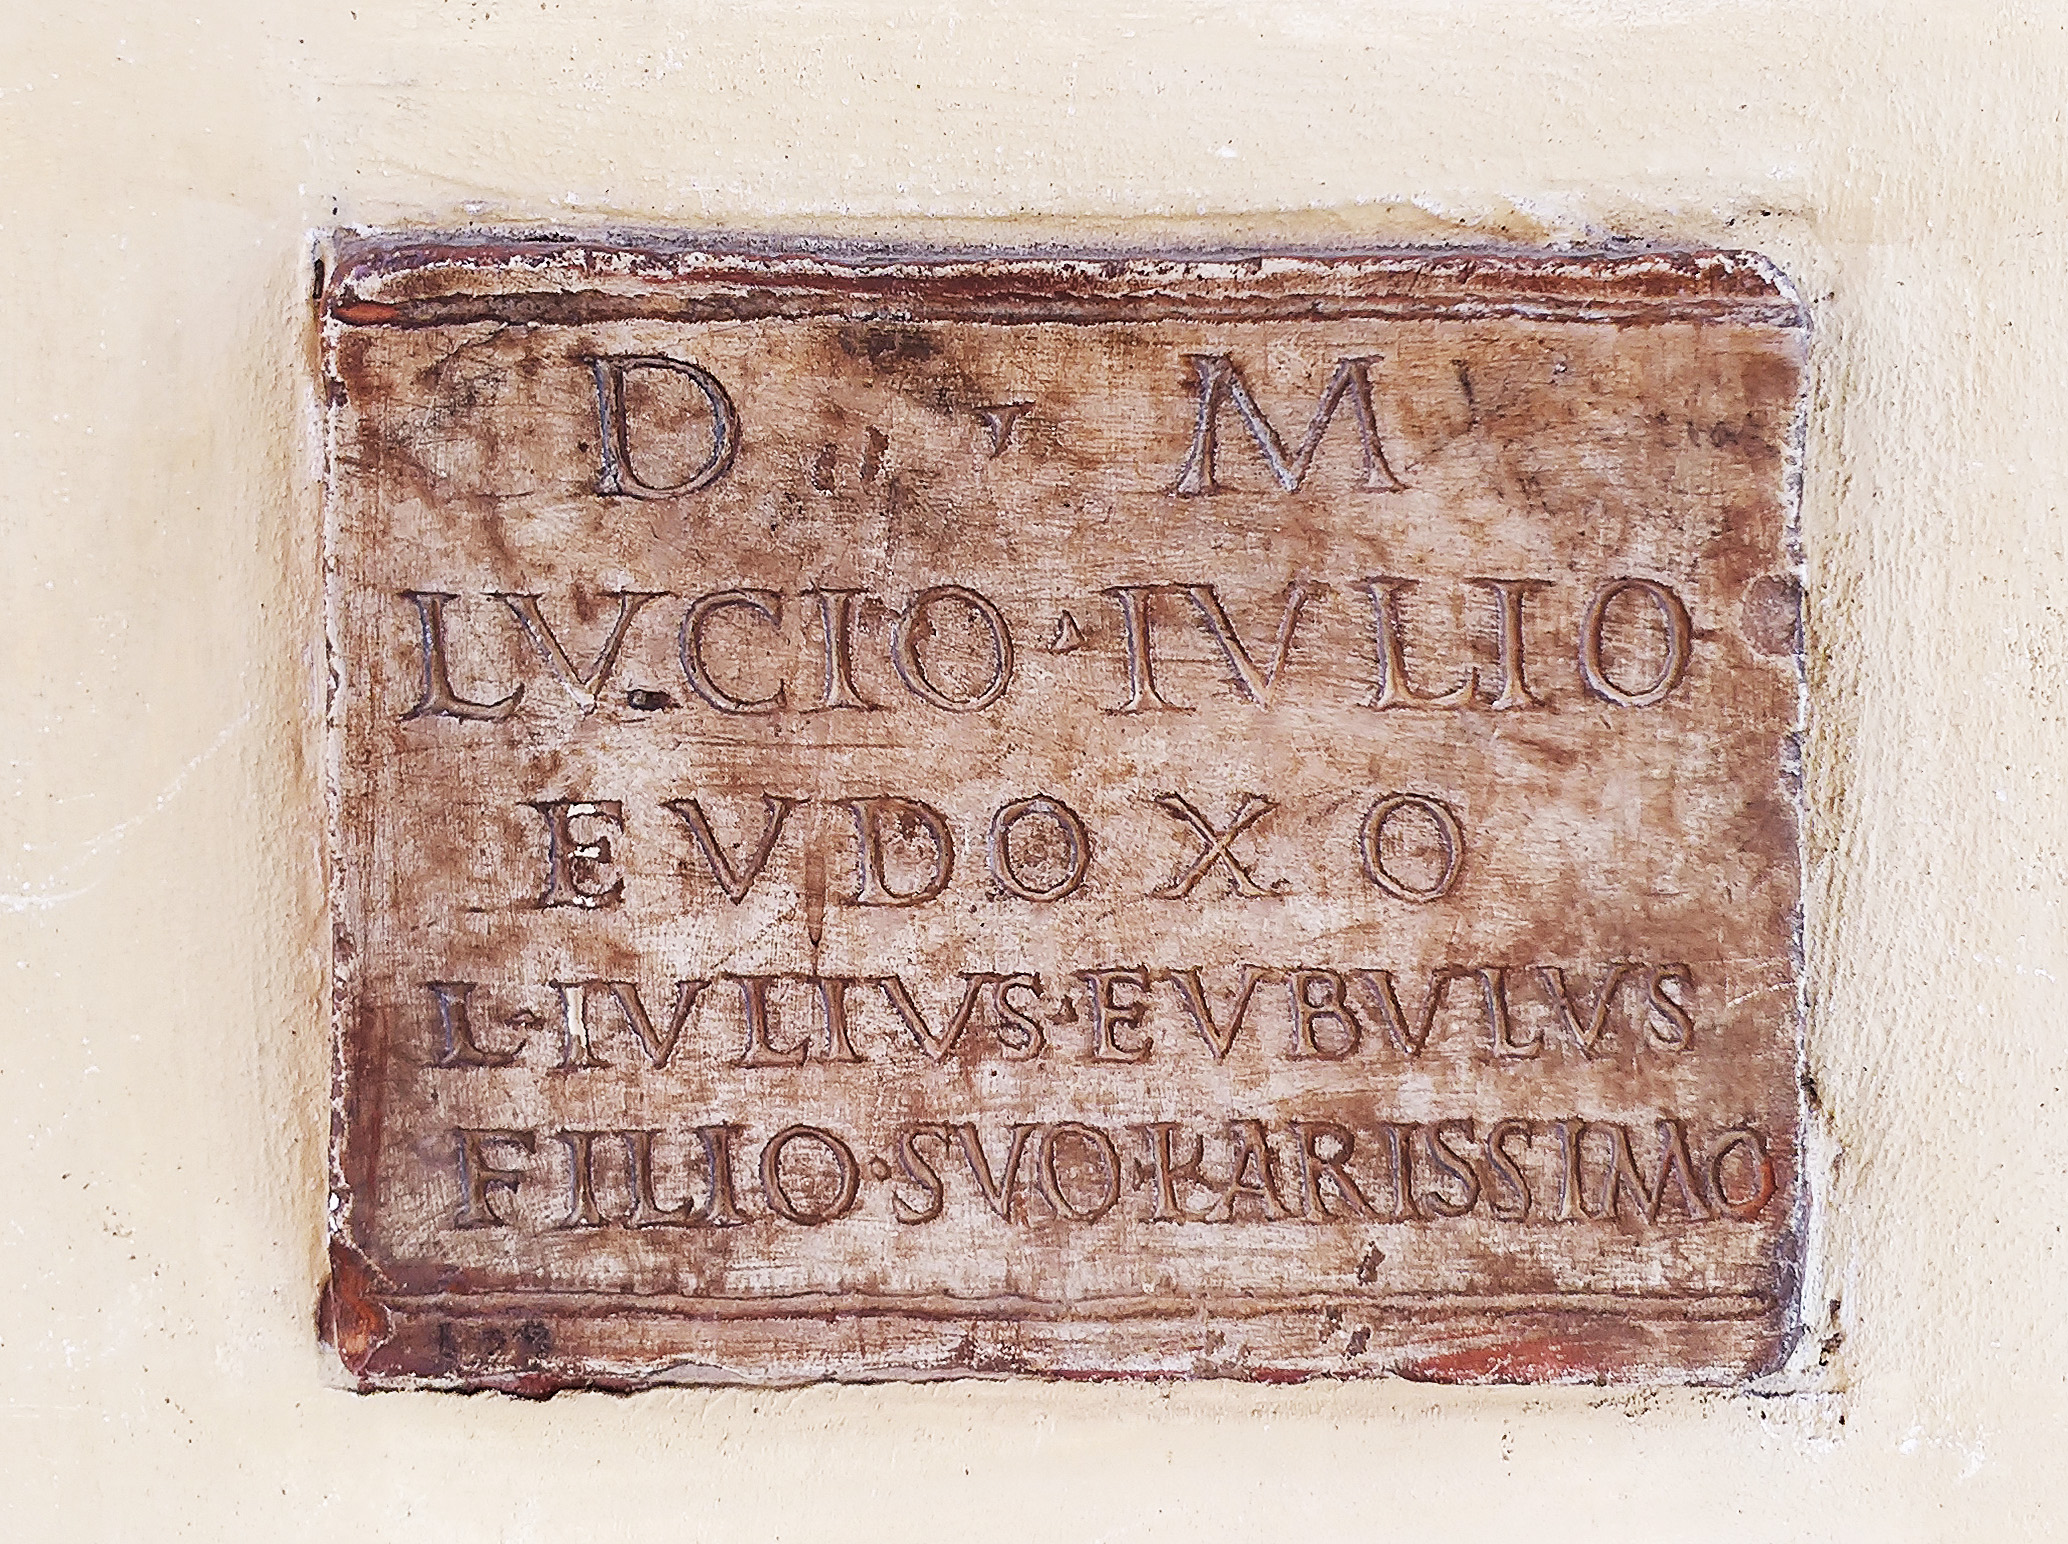 D M
LVCIO · IVLIO
EVDOXO
L · IVLIVS · EVBVLVS
FILIO · SVO · KARISSIMO